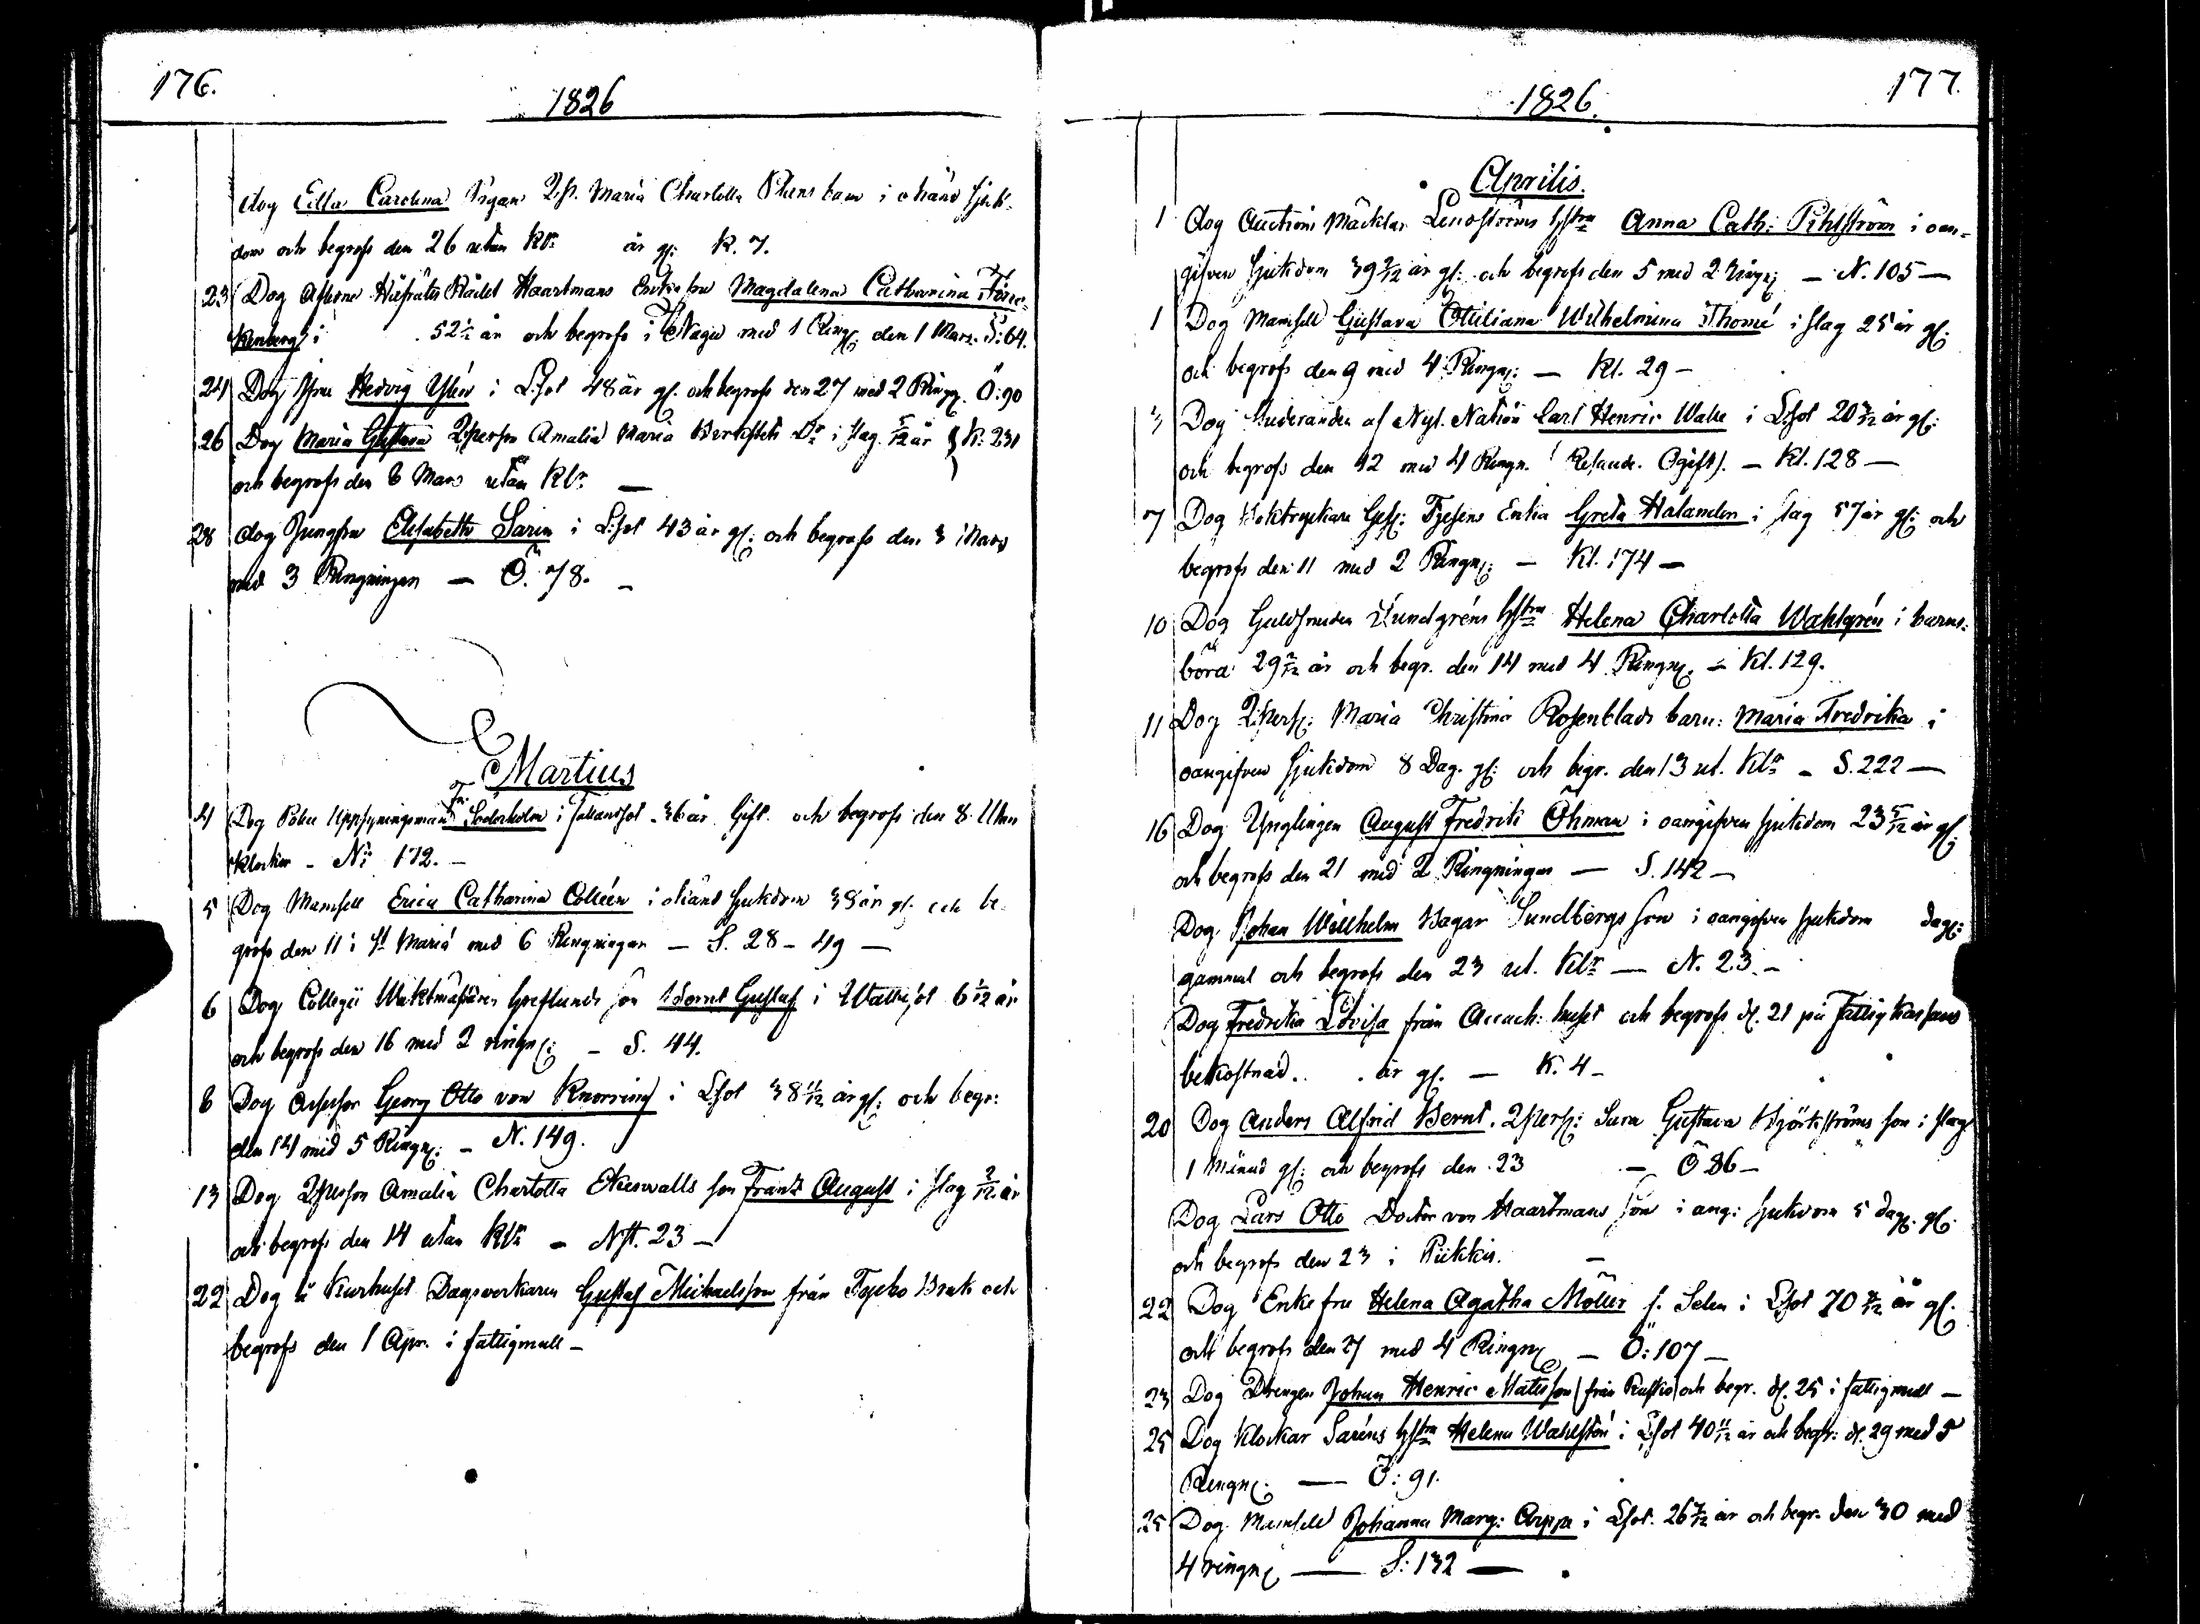 176.
1826
dog Ulla Carolina Pigan Maria Charlotta barn i okänd sjuk-
dom och begrofs den 26 utan Klr. år gl: K. 7.
23 Dog Hofrätts Rådet Haartmans Enkefru Magdalena Catharina
i 52½ år och begrofs i Nagu med 1 Ringn: den 1 Mars. S: 64.
24 Dog Jfru Hedvig i L:sot 48 år gl. och begrofs den 27 med 2 Ringn. Ö: 90
26 Dog Maria Gustava Qpersn Amalia Maria Dr i slag 5/12 år K: 231
och begrofs den 8 Mars utan Klr. —
28 dog Jungfru Elisabeth Sarin i L:sot 43 år gl: och begrofs den 3 Mars
med 3 Ringningar — Ö. 78. —
Martius
4 Dog Police Uppsyningsman Söderholm i fallandsot 36 år Gift. och begrofs den 8. Utan
klockor - No 172. —
5 Dog Mamsell Erica Catharina Colleen i okänd sjukdom 38 år gl. och be-
grofs den 11 i St Mariæ med 6 Ringningar — S. 28 - 49 —
6 Dog Collegii Waktmästaren son Bernt Gustaf i Wattusot 6 1/12 år
och begrofs den 16 med 2 ringn: — S. 44.
8 Dog Assessor Georg Otto von Knorring i L:sot 38 11/12 år gl: och begr:
den 14 med 5 Ringn: — N. 149.
13 Dog Qperson Amalia Charlotta Ekewalls son Frantz August i slag 2/12 år
och begrofs den 14 utan Klr — Ntt. 23 —
22 Dog å Kurhuset Dagsverkaren Gustaf Michaelsson från Tycko Bruk och
begrofs den 1 Apr. i fattigmull —
1826.
177.
Aprilis.
1 dog Auctions Mäcklar Lindströms hstru Anna Cath: Pihlström i oan-
gifven sjukdom 39 2/12 år gl: och begrofs den 5 med 2 Ringn: — N. 105 —
1 Dog Mamsell Gustava Otiliana Wilhelmina Thomé i slag 25 år gl:
och begrofs den 9 med 4 Ringn: — Kl. 29 —
3 Dog Studeranden af Nyl. Nation Carl Henric i L:sot 20 år gl:
och begrofs den 12 med 4 Ringn. Resande. Ogift). — Kl. 128 —
7 Dog Boktryckare Gess: Enka Greta Halanden i slag 57 år gl: och
begrofs den 11 med 2 Ringn: — Kl. 174 —
10 Dog Guldsmeden Lundgréns hstru Helena Charlotta Wahlgrén i barns-
börd 29 år och begr. den 14 med 4 Ringn. — Kl. 129.
11 Dog Qpers: Maria Christina Rosenblads barn: Maria Fredrika i
oangifven sjukdom 8 Dag. gl: och begr. den 13 ut. Klr — S. 222 —
16 Dog Ynglingen August Fredrik Öhman i oangifven sjukdom 23 5/12 år gl:
och begrofs den 21 med 2 Ringningar — S. 142 —
Dog Johan Willhelm Bagar Sundbergs son i oangifven sjukdom dag:
gammal och begrofs den 23 ut. Klr — N. 23. —
Dog Fredrika Lovisa från Accouch: huset och begrofs d. 21 på Fattig Kassans
bekostnad. . . år gl. — K. 4 —
20 Dog Anders Alfrid Bernt. Qpers: Sara Gustava Björkströms son i slag
1 Månad gl: och begrofs den 23 — Ö 86 —
Dog Lars Otto Doctor von Haartmans son i ang: sjukdom 5 dag: gl:
och begrofs den 23 i Pikkis. —
22 Dog Enke fru Helena Agatha Möller f. Selin i L:sot 70 år gl.
och begrofs den 27 med 4 Ringn: — Ö: 107 —
23 Dog Drengen Johan Henric Matsson (från Rusko) och begr. d. 25 i fattigmull —
25 Dog Klockar Saréns hstru Helena i L:sot 40 11/12 år och begr: d. 29 med 5
Ringn: — Ö: 91.
25 Dog Mamsell Johanna Marg: Arppe i L:sot. 26 år och begr. den 30 med
4 ringn: — S: 132 —